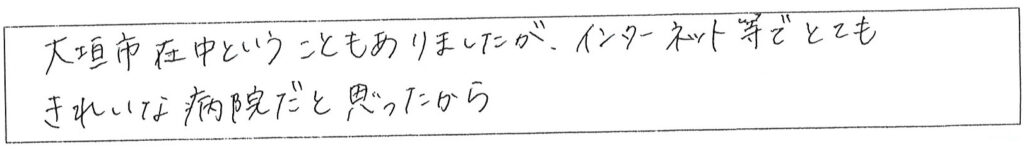 大垣市在中ということもありましたが、インターネット等でとても
きれいな病院だと思ったから